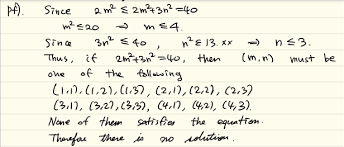 pf). Since 2m² ≤ 2m²+3n² = 40
m² ≤ 20 ⇒ m ≤ 4.
Since 3n² ≤ 40, n² ≤ 13.xx ⇒ n ≤ 3.
Thus, if 2m²+3n² = 40, then (m,n) must be
one of the following
(1,1), (1,2), (1,3), (2,1), (2,2), (2,3)
(3,1), (3,2), (3,3), (4,1), (4,2), (4,3).
None of them satisfies the equation.
Therefore there is no solution.